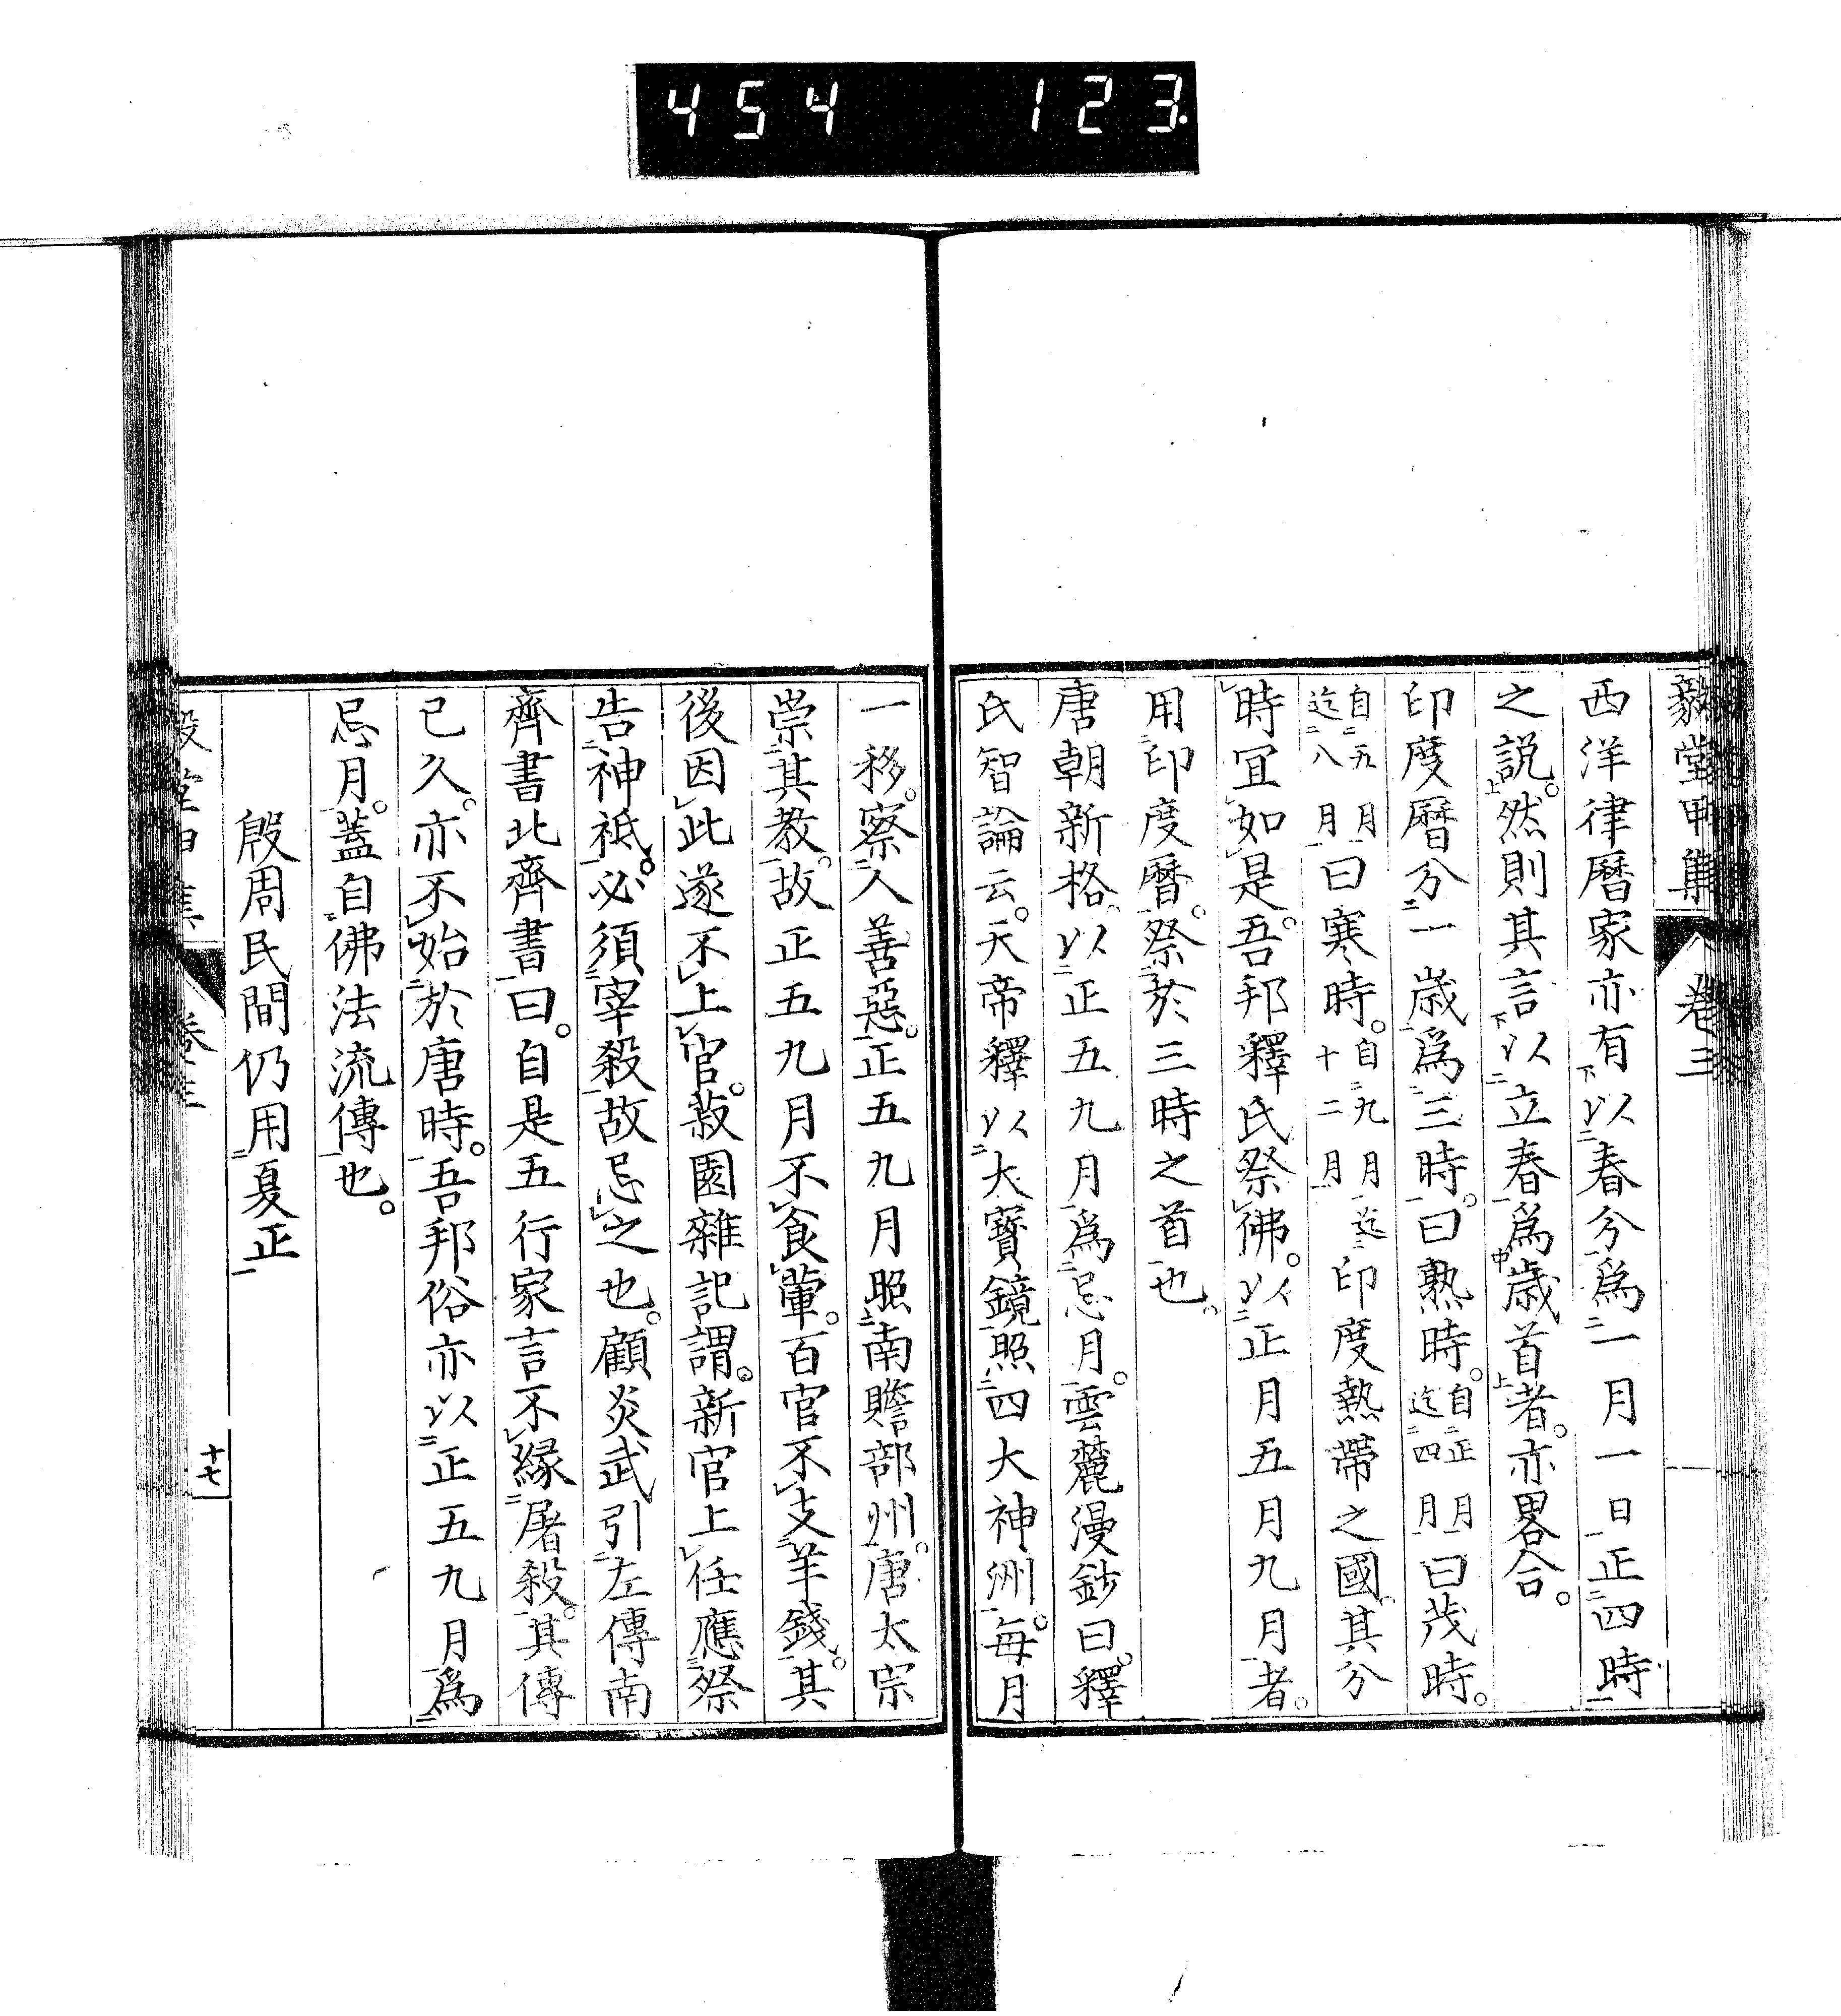 454 123
毅堂甲集 卷三
西洋律曆家亦有以春分爲一月一日正四時
之説。然則其言以立春爲歳首者。亦畧合。
印度曆分一歳爲三時。曰熟時。自正月迄四月曰茂時。
自五月迄八月曰寒時。自九月迄十二月印度熱帶之國其分
時冝如是。吾邦釋氏祭佛。以正月五月九月者。
用印度曆。祭於三時之首也。
唐朝新格以正五九月爲忌月。雲麓漫鈔曰。釋
氏智論云。天帝釋以大寳鏡照四大神洲。毎月
一移。察人善惡。正五九月照南贍部州。唐太宗
崇其教。故正五九月不食葷。百官不支羊錢。其
後因此遂不上官。菽園雜記謂。新官上任應祭
告神祇。必須宰殺故忌之也。顧炎武引左傳南
齊書北齊書曰。自是五行家言不縁屠殺。其傳
已久。亦不始於唐時。吾邦俗亦以正五九月爲
忌月。蓋自佛法流傳也。
殷周民間仍用夏正
十七